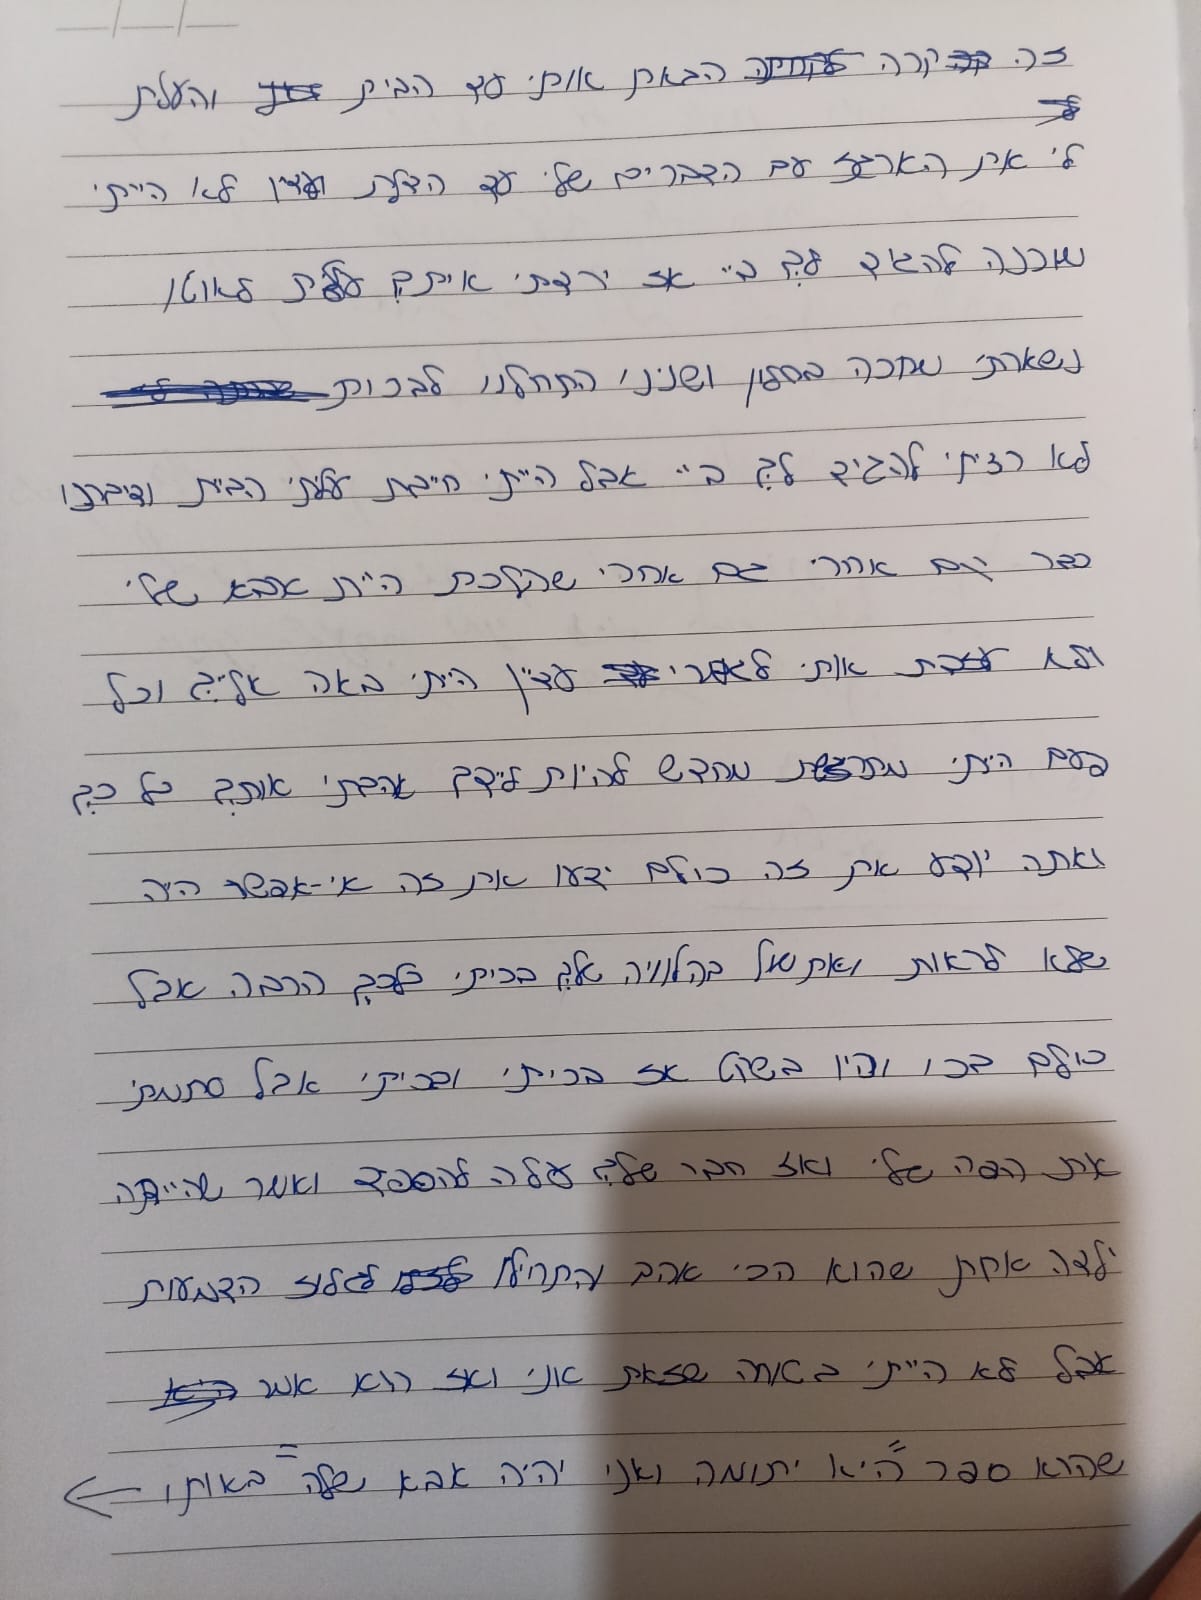 זה קרה הבאת אותי עד הבית והעלת
לי את הארגז עם הדברים שלי עד הדלת ועדין לא הייתי
מוכנה להגיד לך ביי אז ירדתי איתך עלית לאוטו
נשארתי מחכה בחלון ושנינו התחלנו לבכות
לא רציתי להגיד לך ביי אבל הייתי חייבת עליתי הביית ודיברנו
כבר יום אחרי גם אחרי שהלכת היית אבא שלי
ולא עזבת אותי לאמרי עדיין הייתי באה אלייך וכל
פעם הייתי מתרגשת מחדש להיות לידך אהבתי אותך כל כך
ואתה יודע את זה כולם ידעו את זה אי-אפשר היה
שלא לראות ואתמול בהלוויה שלך בכיתי כל כך הרבה אבל
כולם בכו והיו בשקט אז בכיתי ובכיתי אבל סתמתי
את הפה שלי ואז חבר שלך עלה להספד ואמר שהייתה
ילדה אחת שהוא הכי אהב והתחילו לזלוג הדמעות
אבל לא הייתי בטוחה שזאת אני ואז הוא אמר
שהוא ספר "היא יתומה ואני יהיה אבא שלה" באותו